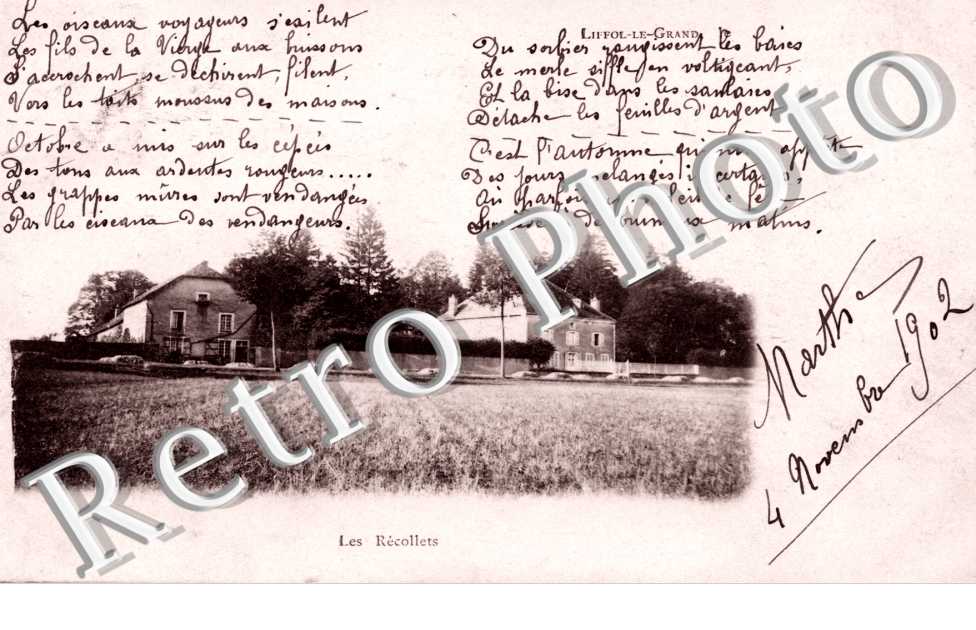 Les oiseaux voyageurs s'exilent
Les fils de la Vierge aux buissons
S'accrochent, se déchirent, filent,
Vers les toits moussus des maisons.
Octobre a mis sur les cépées
Des tons aux ardentes rougeurs.....
Les grappes mûres sont vendangées
Par les ciseaux des vendangeurs.
LIFFOL-LE-GRAND
Du sorbier rougissent les baies
Le merle siffle en voltigeant,
Et la bise dans les
Détache les feuilles d'argent
C'est l'automne qui
Des jours mélangés
Où parfois
de brumeux matins.
Marthe
4 Novembre 1902
Les Récollets
Retro Photo